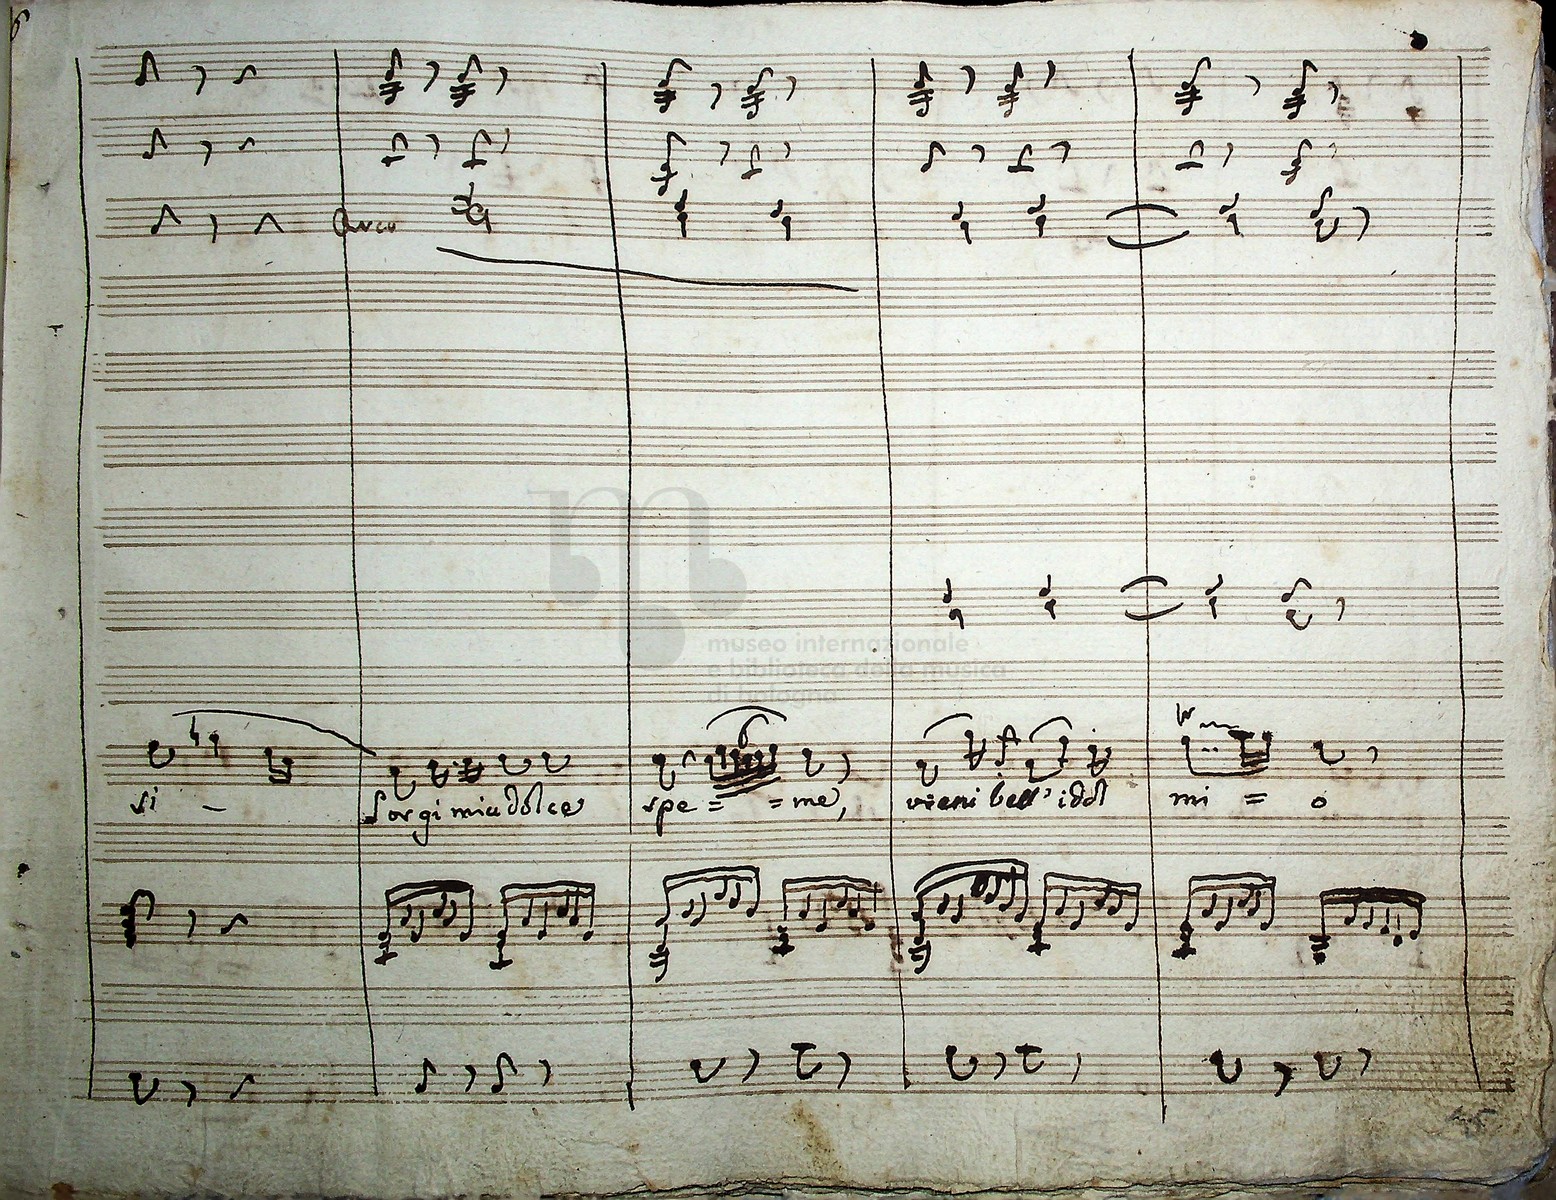 6
Arco
museo internazionale
e biblioteca della musica
di bologna
si - Sorgi mia dolce spe = = me, vieni bell' idol mi = o